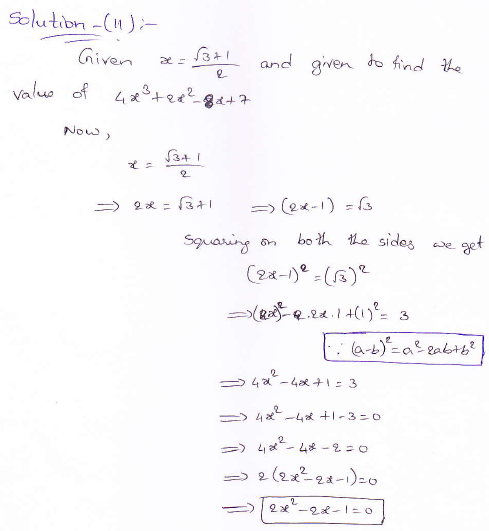 Solution-(11):-
Given x = √3+1/2 and given to find the
value of 4x³+2x²-8x+7
Now,
x = √3+1/2
⇒ 2x = √3+1 ⇒ (2x-1) = √3
Squaring on both the sides we get
(2x-1)² = (√3)²
⇒ (2x)² - 2.2x.1 + (1)² = 3
∵ (a-b)² = a²-2ab+b²
⇒ 4x² - 4x + 1 = 3
⇒ 4x² - 4x + 1 - 3 = 0
⇒ 4x² - 4x - 2 = 0
⇒ 2(2x² - 2x - 1) = 0
⇒ 2x² - 2x - 1 = 0